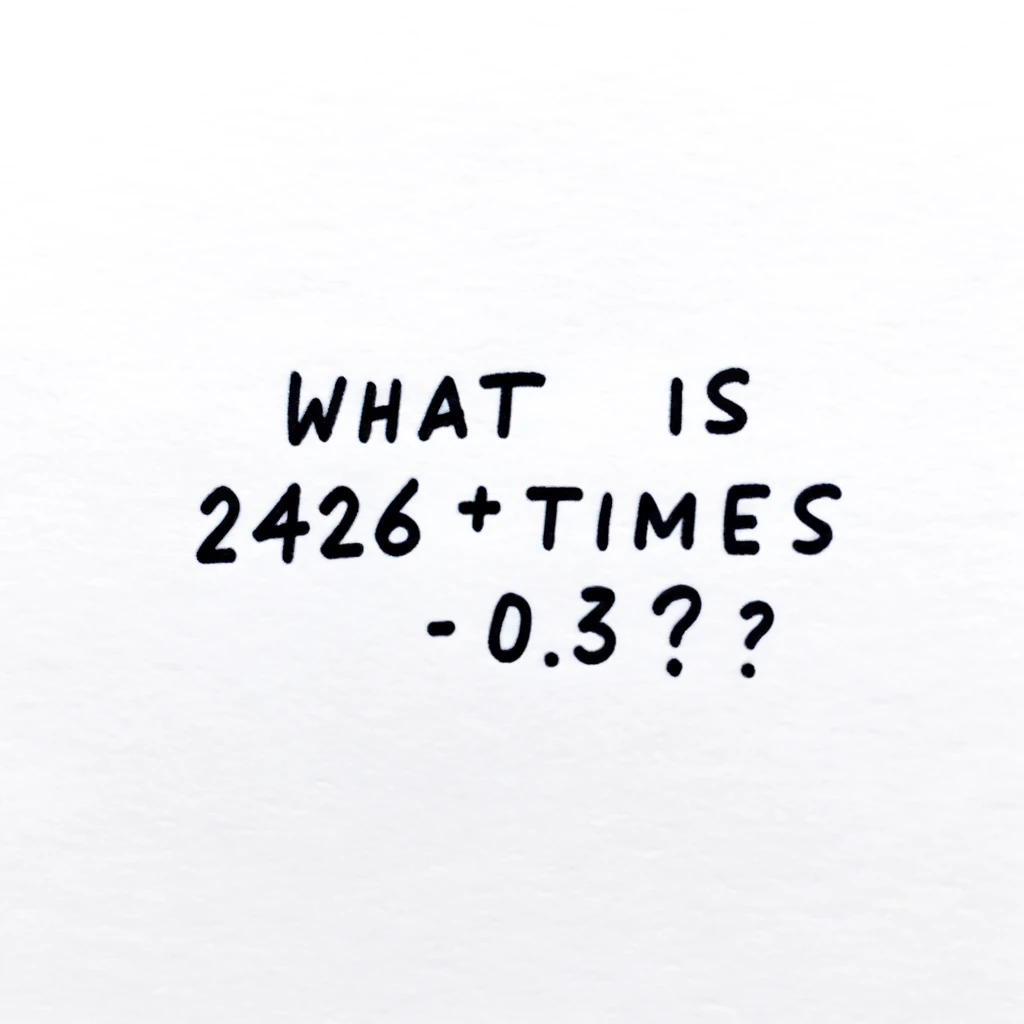 WHAT IS
2426 + TIMES
- 0.3 ? ?